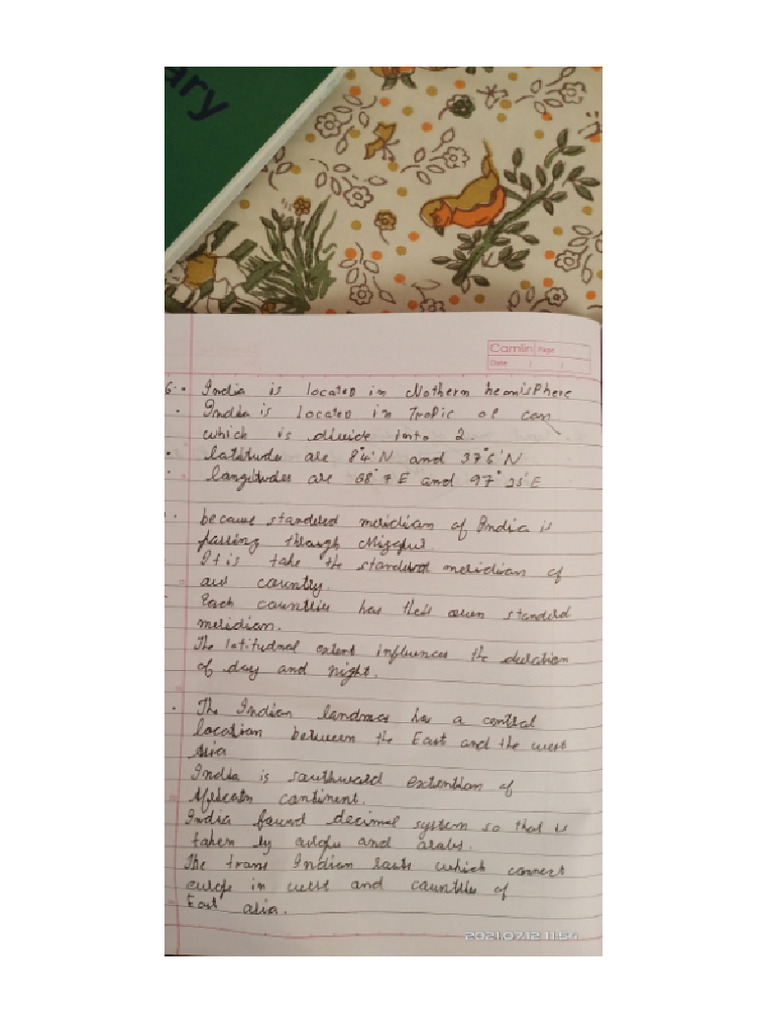 ary
Camlin Page
Date / /
6. • India is located in Nothern hemisphere
• India is located in Tropic of can
which is divide into 2.
• latitude are 8°4'N and 37°6'N
• longitudes are 68°7 E and 97°25'E
• because standered meridian of India is
passing through Mizapur.
It is take the standerd meridian of
our country.
Each countries has their own standerd
meridian.
The latitudnal extent influences the duration
of day and night.
• The Indian landmass has a central
location between the East and the west
Asia
India is southward extention of
continent.
India found decimal system so that is
taken by europe and arabs.
The trans Indian which connect
europe in west and countries of
East asia.
2021.07.12 11:54